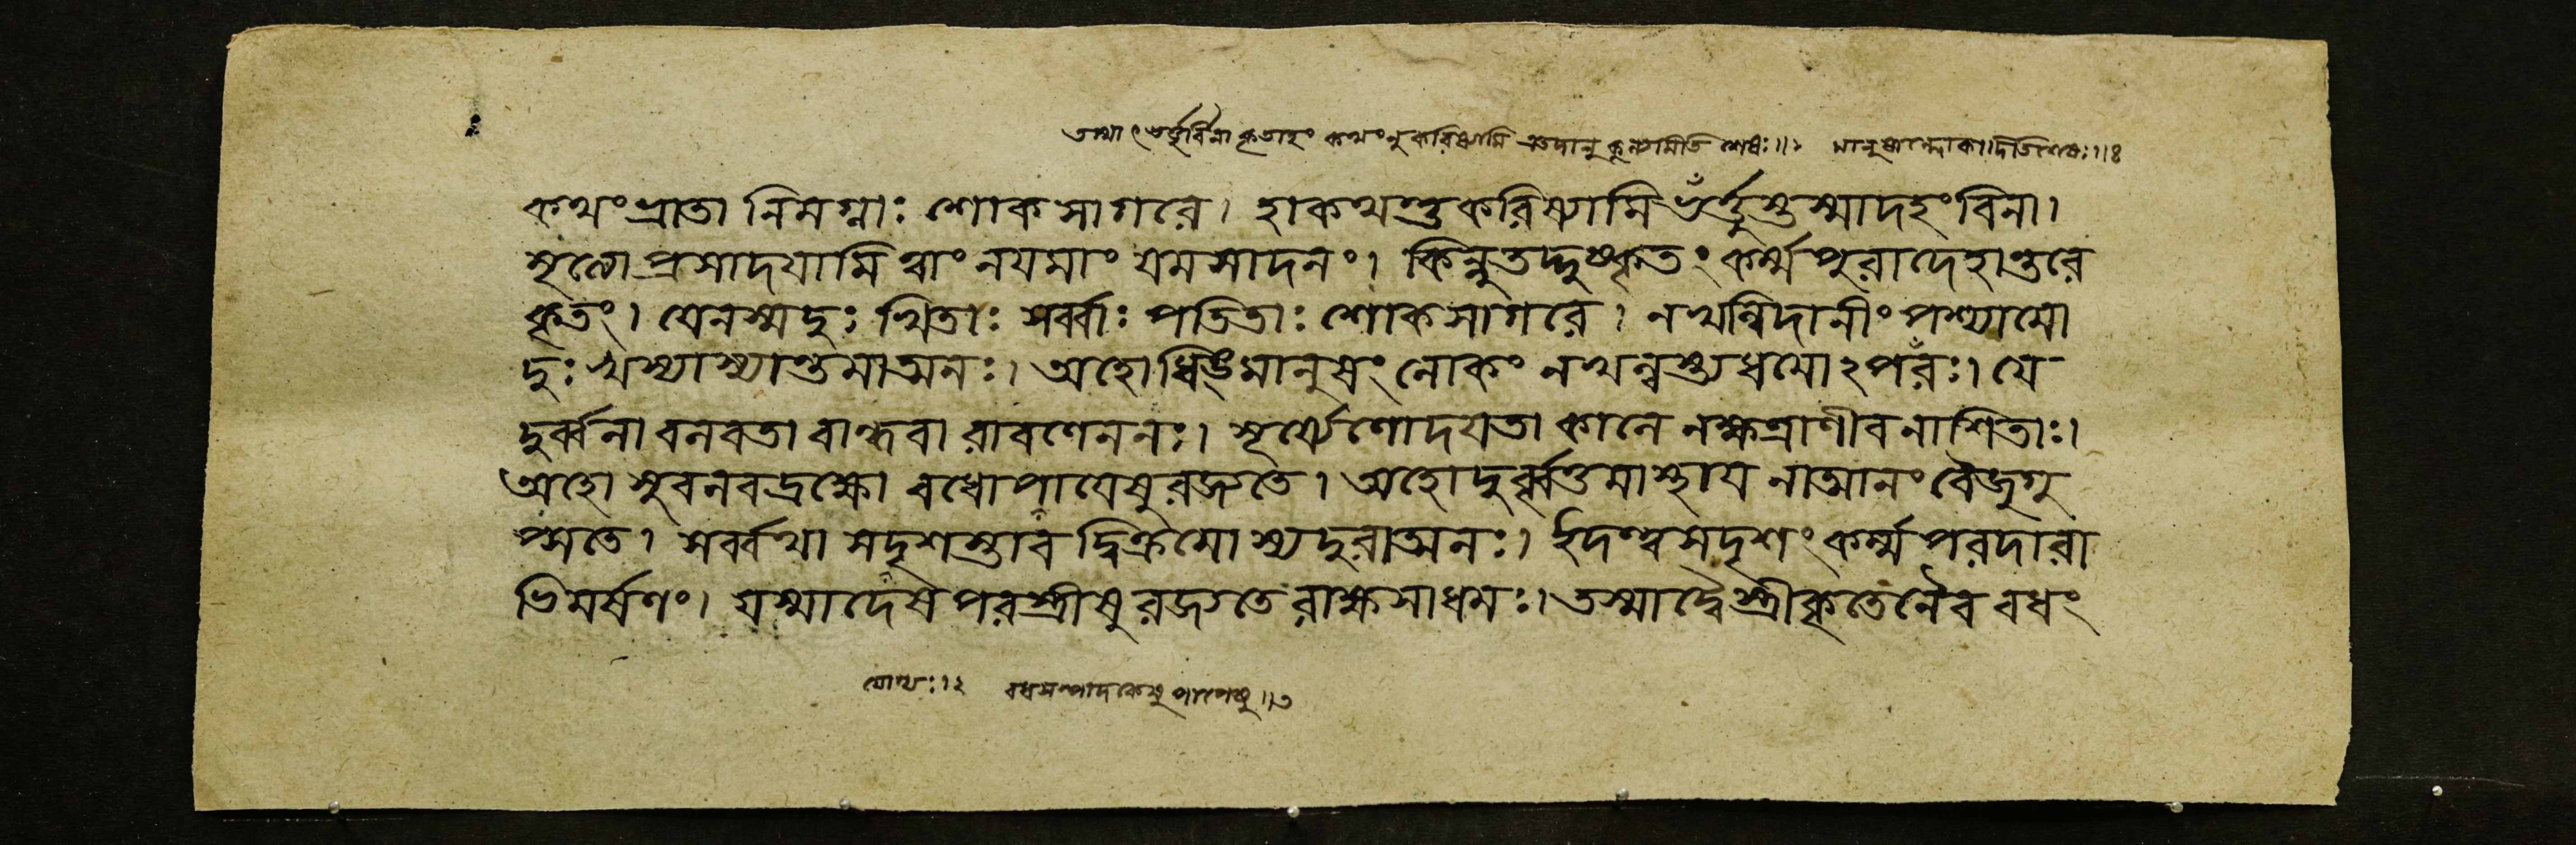 তস্মাৎ ভর্ত্তুর্বিনা কৃতাহং কথংনু করিষ্যামি তদানুকূল্যমিতি শেষঃ॥১ মানুষাল্লোকাদিতিশেষঃ॥৪
কথং ভ্রাতা নিমগ্নাঃ শোকসাগরে। হাকথন্নুকরিষ্যামি ভর্ত্তুস্তস্মাদহং বিনা।
মৃত্যো প্রসাদযামি ত্বাং নযমাং যমসাদনং। কিন্নুতদ্দুষ্কৃতং কর্ম্ম পুরাদেহান্তরে
কৃতং। যেনস্মদুঃখিতাঃ সর্ব্বাঃ পতিতাঃ শোকসাগরে। নখল্বিদানীং পশ্যামো
দুঃখস্যাস্যান্তমাত্মনঃ। অহোধিঙ্মানুষং লোকং নখল্বস্ত্যধমোঽপরঃ। যে
দুর্ব্বলা বলবতা বান্ধবা রাবণেননঃ। সূর্য্যেণোদযতা কালে নক্ষত্রাণীব নাশিতাঃ।
অহো সুবলবদ্রক্ষো বধোপাযেষুরজ্যতে। অহোদুর্ব্বৃত্তমাস্থায নাত্মানং বৈজুগু
প্সতে। সর্ব্বথা সদৃশস্তাবদ্বিক্রমোস্যদুরাত্মনঃ। ইদন্ত্বসদৃশং কর্ম্ম পরদারা
ভিমর্ষণং। যস্মাদেষ পরস্ত্রীষু রজ্যতে রাক্ষসাধমঃ। তস্মাদ্বৈ স্ত্রীকৃতেনৈব বধং
বধসম্পাদকেষু পাপেষু॥৩